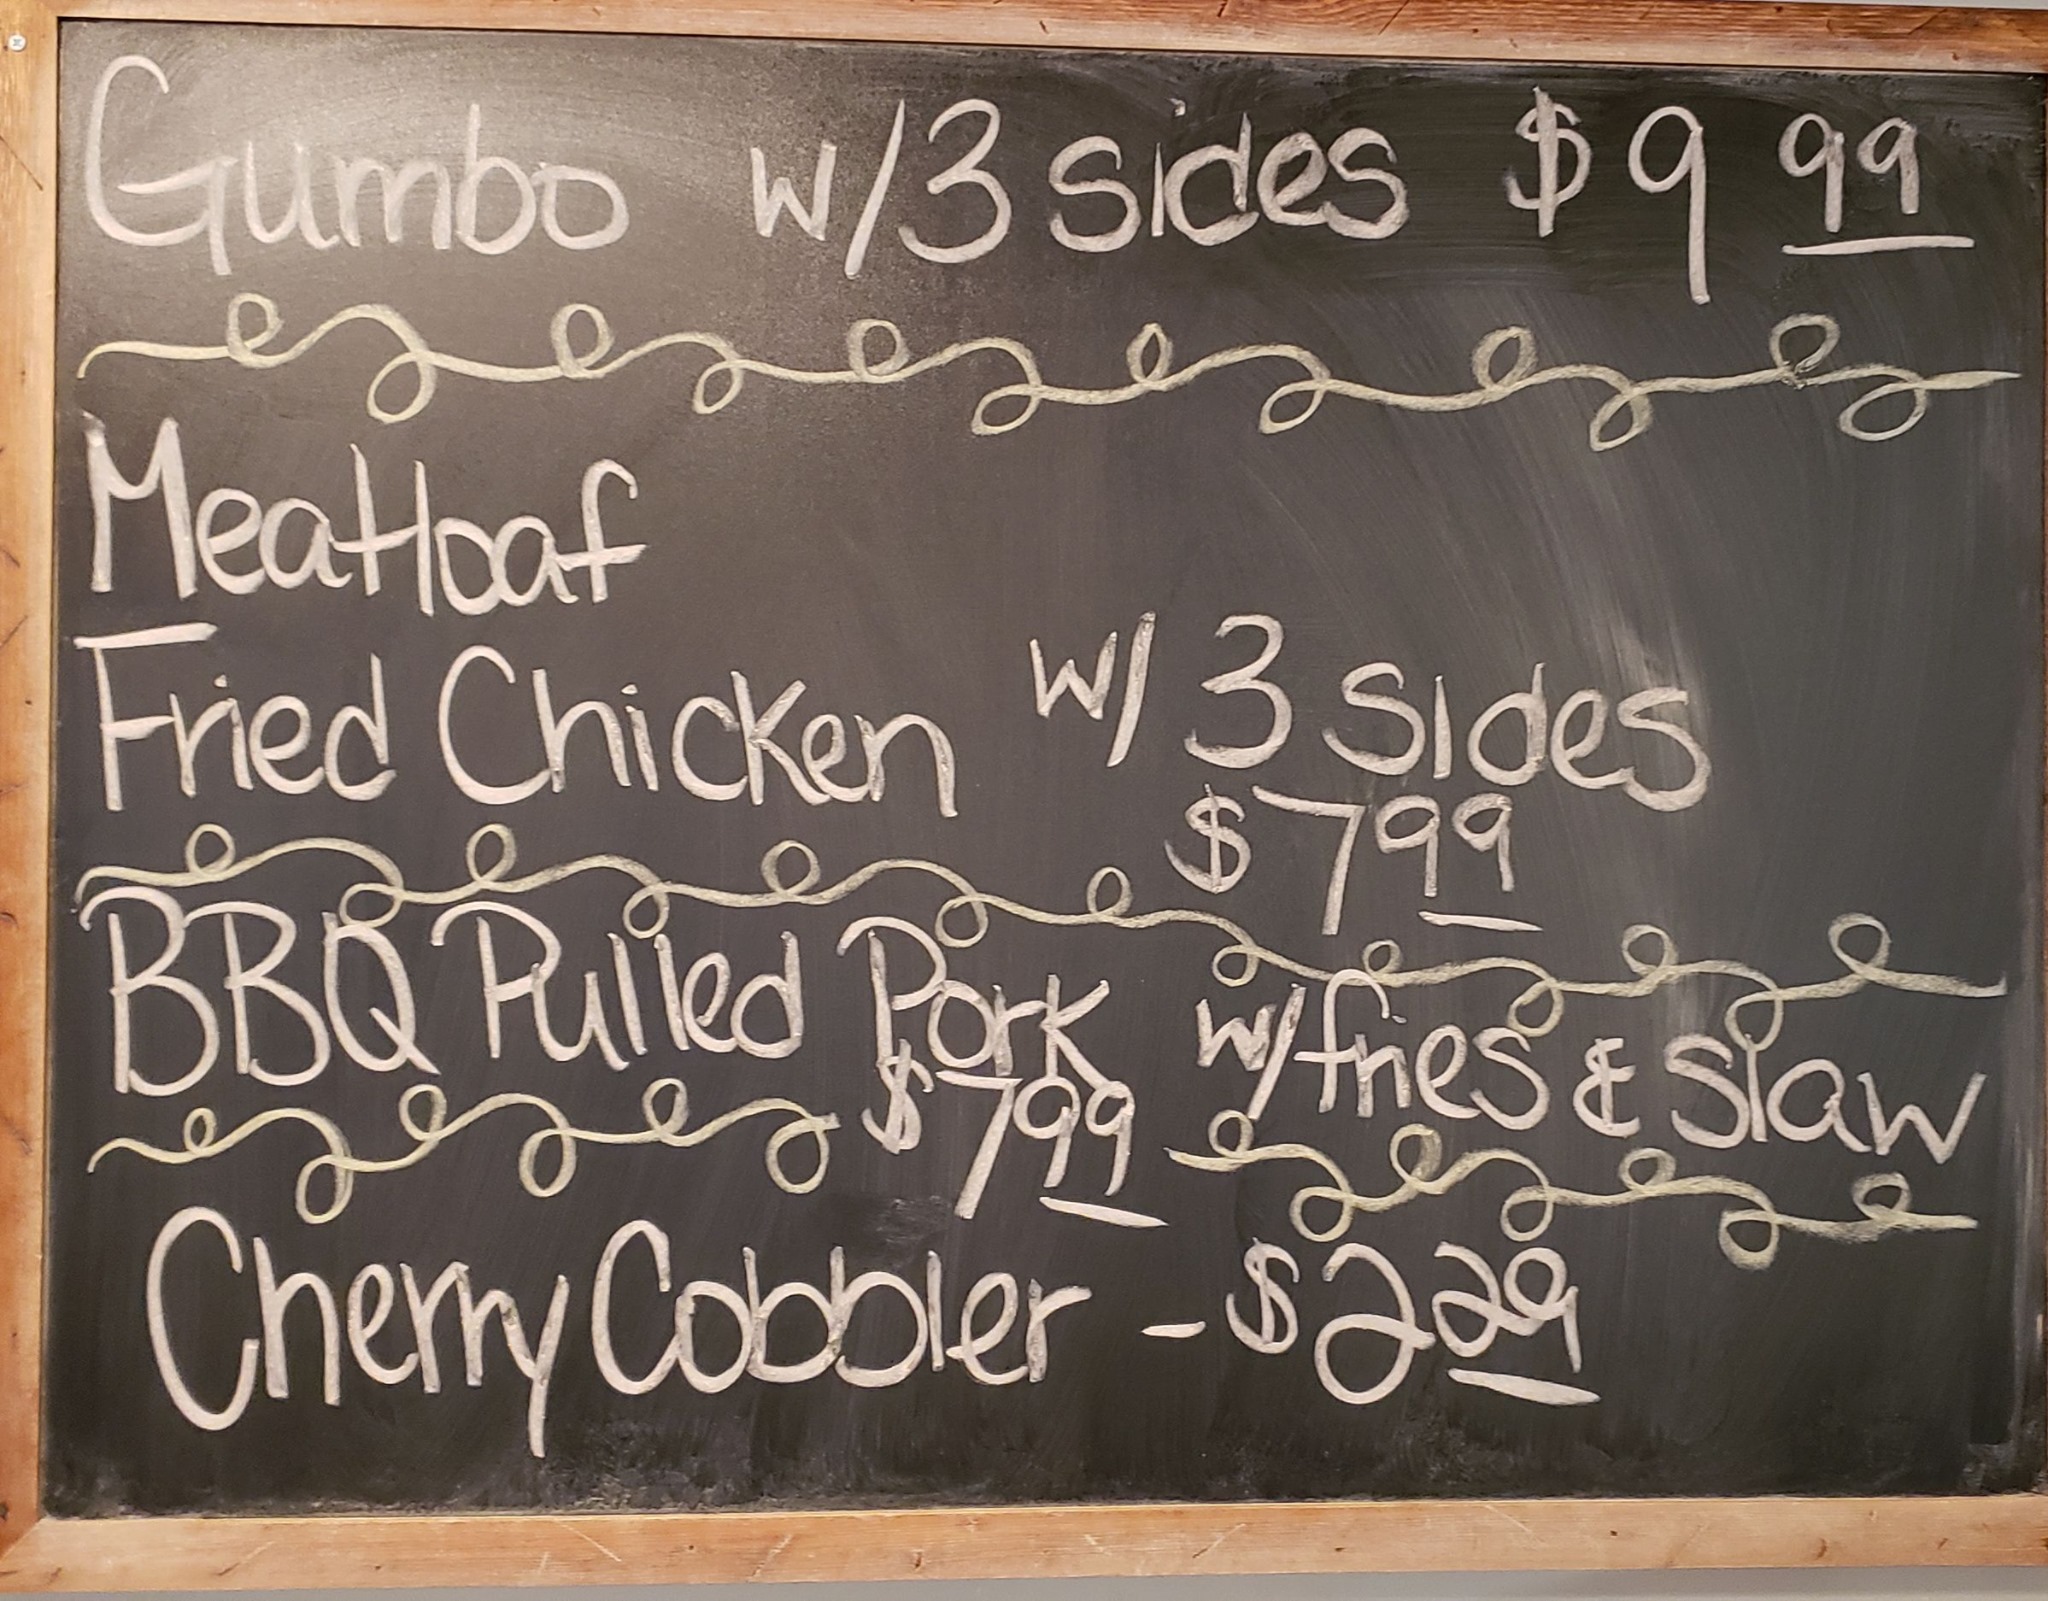 Gumbo w/3 sides $9 99
Meatloaf
Fried Chicken w/ 3 sides
$799
BBQ Pulled Pork w/fries & slaw
$799
Cherry Cobbler - $229